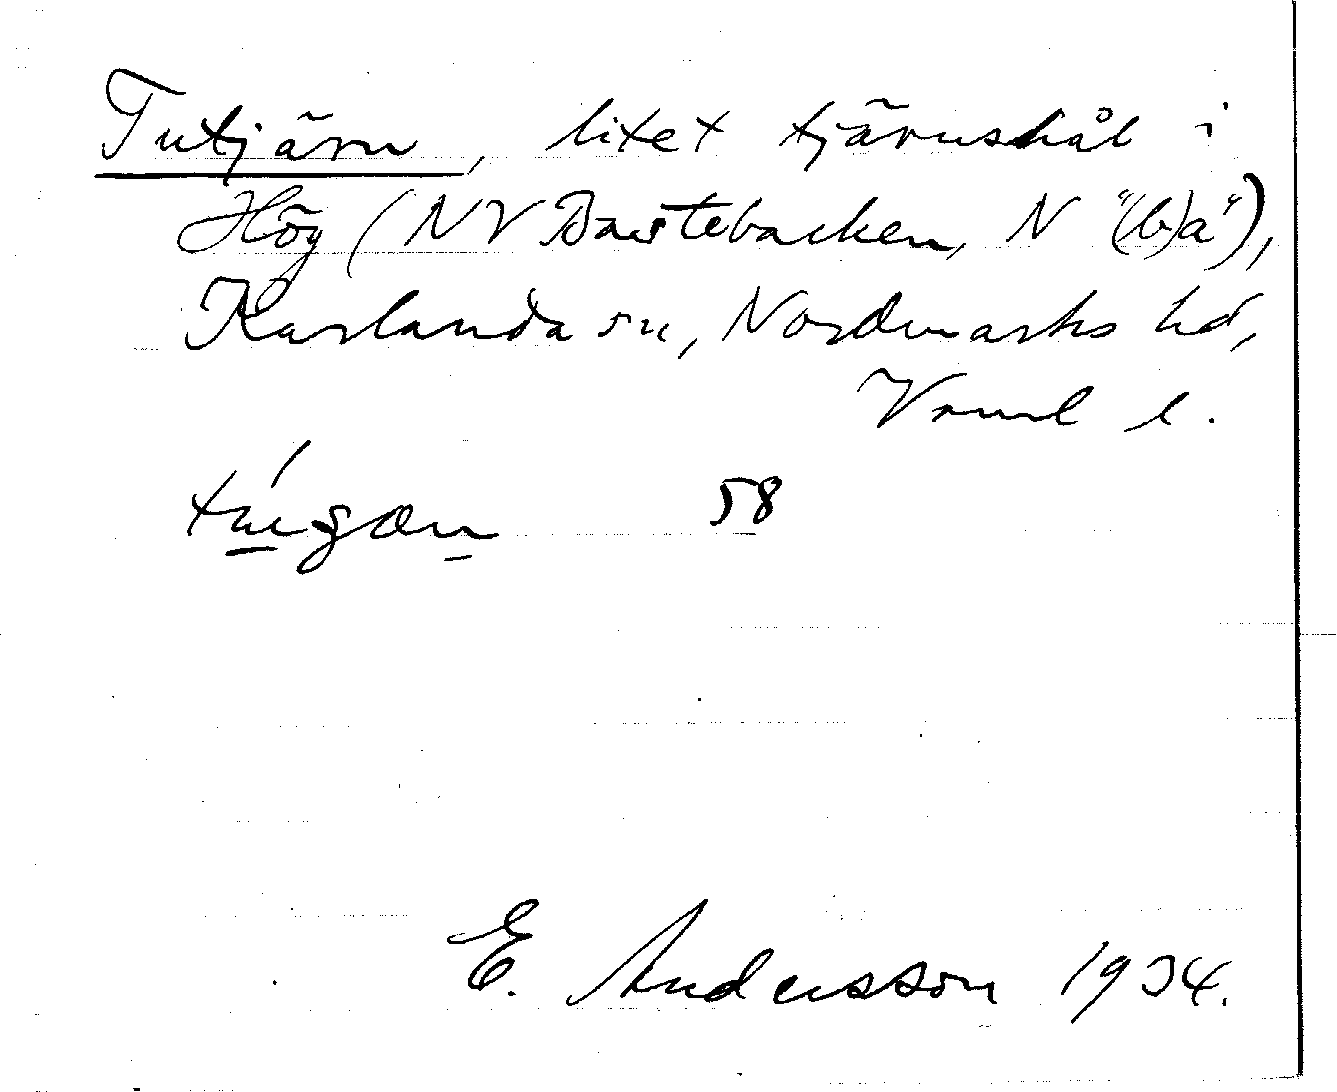 Tutjärn, litet tjärnshål i
Hög (NV Bastebacken, N "(b)a"),
Karlanda sn, Nordmarks hd,
Vrml l.
58
E. Andersson 1934.